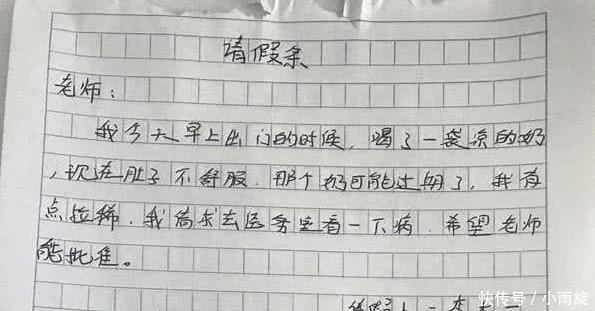 请假条
老师：
我今天早上出门的时候，喝了一袋凉的奶
，现在肚子不舒服，那个奶可能过期了，我有
点拉稀，我请求去医务室看一下病，希望老师
能批准。
快传号／小雨旋